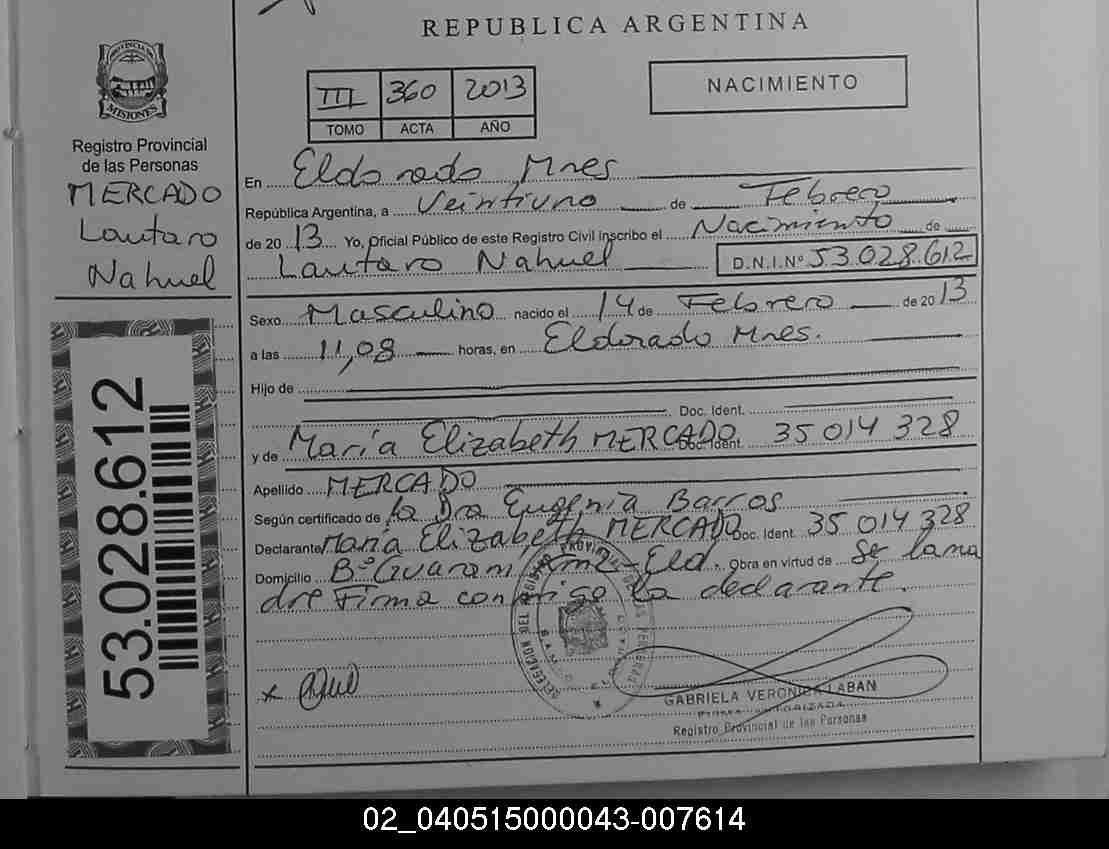 REPUBLICA ARGENTINA
PROVINCIA DE
MISIONES
Registro Provincial
de las Personas
MERCADO
Lautaro
Nahuel
53.028.612
III 360 2013
TOMO ACTA AÑO
NACIMIENTO
En Eldorado Mnes
República Argentina, a Veintiuno de Febrero
de 2013 Yo, Oficial Público de este Registro Civil inscribo el Nacimiento de
Lautaro Nahuel D.N.I.Nº 53.028.612
Sexo Masculino nacido el 14 de Febrero de 2013
a las 11,08 horas, en Eldorado Mnes.
Hijo de
Doc. Ident.
y de María Elizabeth MERCADO Doc. Ident. 35 014 328
Apellido MERCADO
Según certificado de la Dra Eugenia Barros
Declarante María Elizabeth MERCADO Doc. Ident. 35 014 328
Domicilio Bº Guaraní Eld. Obra en virtud de Ser la ma
dre Firma conmigo la declarante.
GABRIELA VERONICA LABAN
FIRMA AUTORIZADA
Registro Provincial de las Personas
02_040515000043-007614